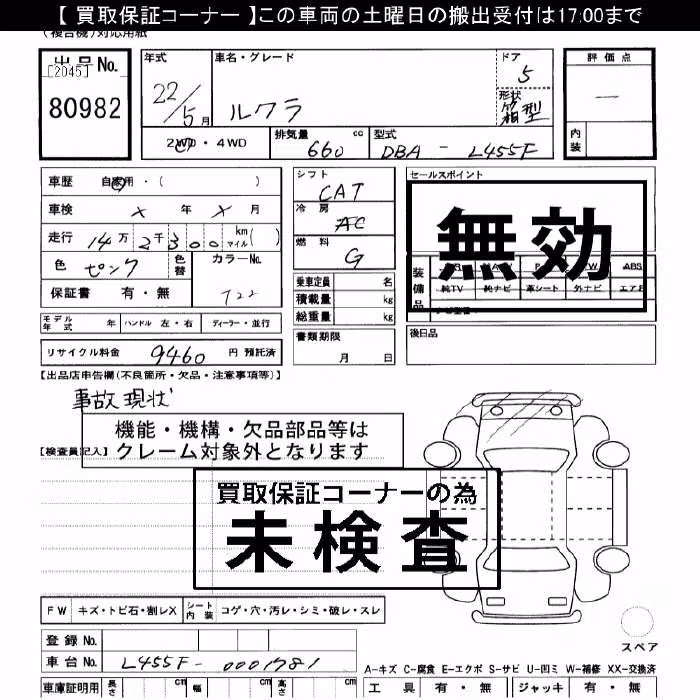 【 買取保証コーナー 】この車両の土曜日の搬出受付は17:00まで
(複合機)対応用紙
出品No.
[2045]
80982
年式 車名・グレード ドア 評価点
22/5月 ルクラ 5
形状 箱型
— 内装
2WD・4WD 排気量 660 cc 型式 DBA - L455F
車歴 自家用・( )
車検 × 年 × 月
走行 14万2千300 km マイル( )
色 ピンク 色替 カラーNo.
T22
保証書 有・無
シフト CAT
冷房 AC
燃料 G
乗車定員 名
積載量 kg
総重量 kg
セールスポイント
無効
装備品 ABS
純TV 純ナビ 革シート 外ナビ エアB
モデル年式 年 ハンドル 左・右 ディーラー・並行
書類期限
月 日
後日品
リサイクル料金 9460 円 預託済
【出品店申告欄(不良箇所・欠品・注意事項等)】
事故現状
機能・機構・欠品部品等は
クレーム対象外となります
【検査員記入】
買取保証コーナーの為
未検査
FW キズ・トビ石・割レX シート内装 コゲ・穴・汚レ・シミ・破レ・スレ
登録No.
車台No. L455F-0001781
スペア
A-キズ C-腐食 E-エクボ S-サビ U-凹ミ W-補修 XX-交換済
車庫証明用 長さ cm 幅 cm 高さ cm 工具 有・無 ジャッキ 有・無